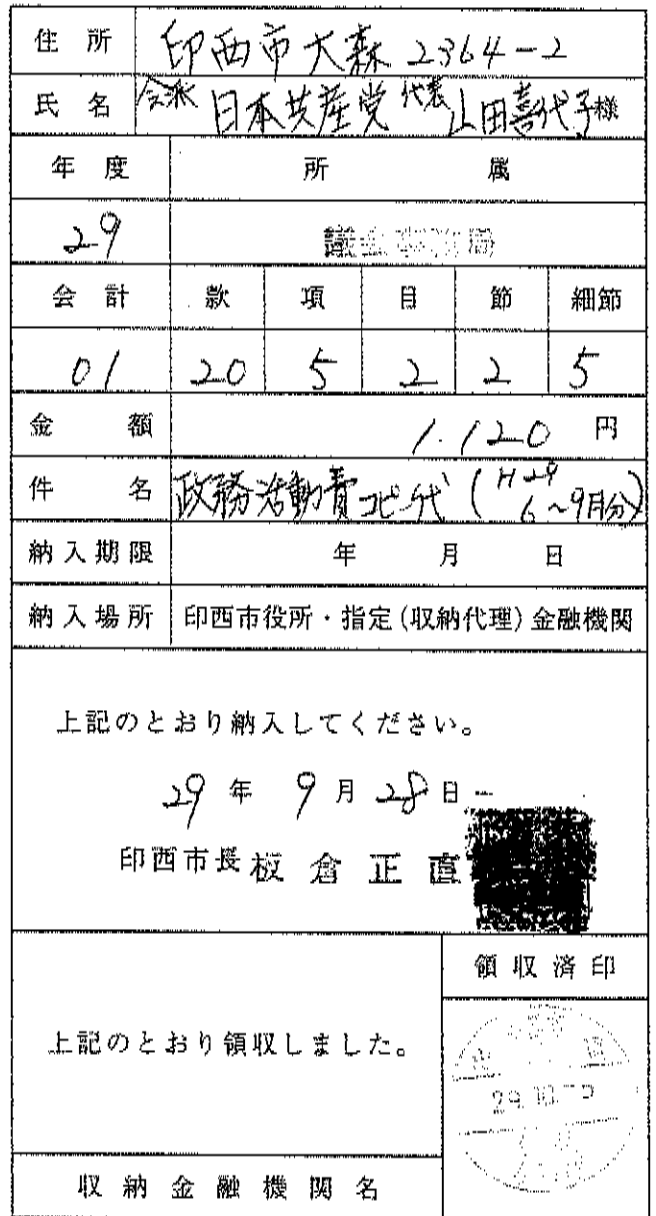 住所 印西市大森2364-2
氏名 会派 日本共産党 代表 山田喜代子様
年度 所属
29 議会事務局
会計 款 項 目 節 細節
01 20 5 2 2 5
金額 1.120 円
件名 政務活動費コピー代(H29 6~9月分)
納入期限 年 月 日
納入場所 印西市役所・指定(収納代理)金融機関
上記のとおり納入してください。
29年 9月 28日
印西市長 板倉正直
領収済印
上記のとおり領収しました。
29.10.
収納金融機関名